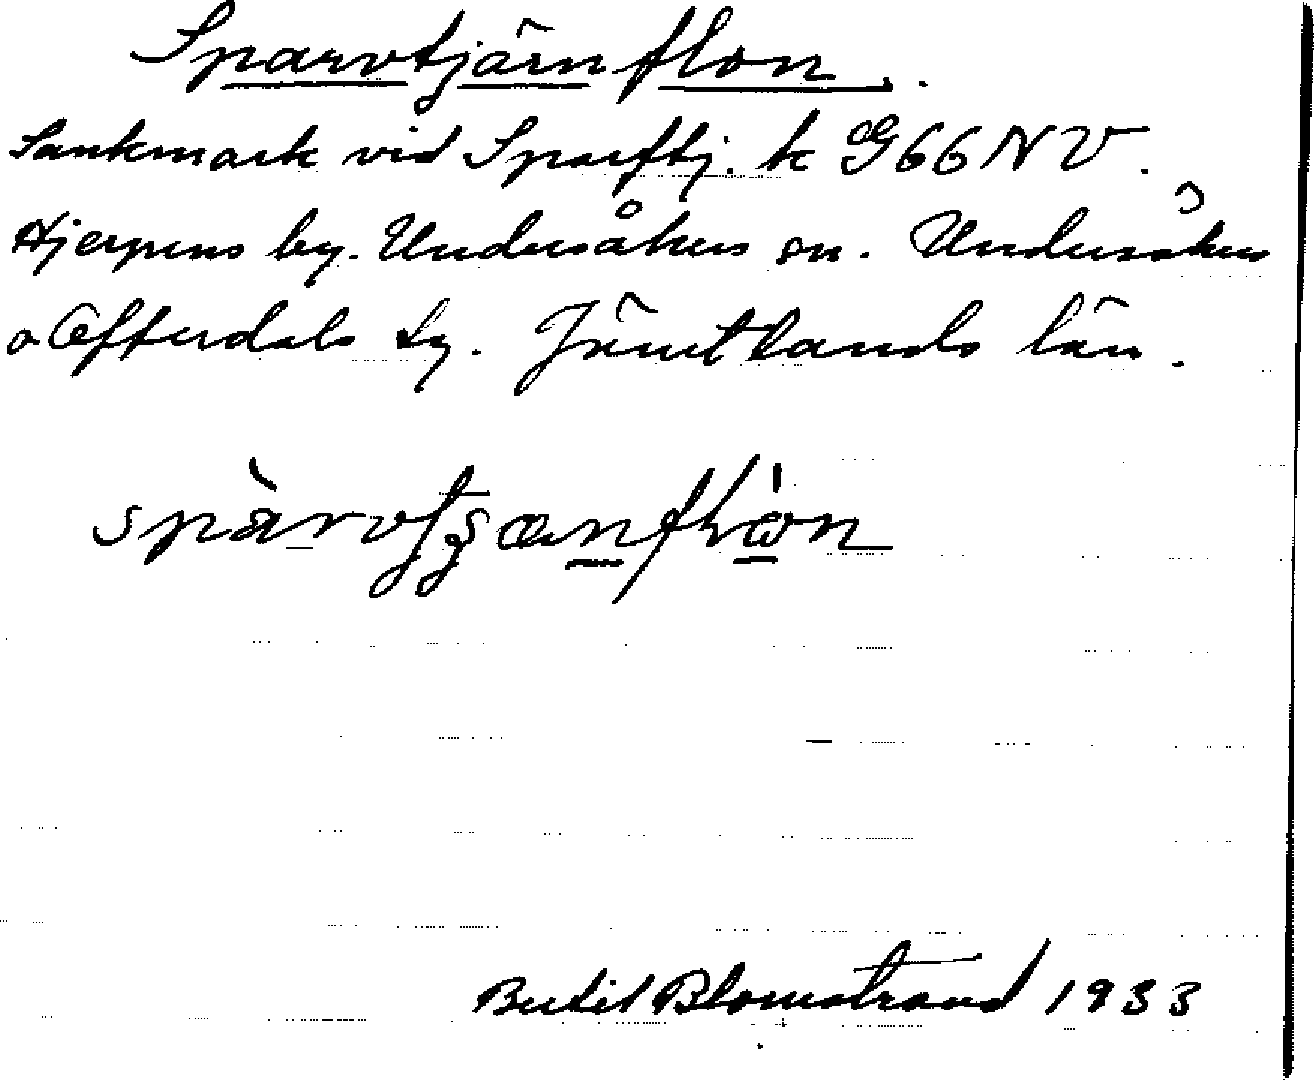 Sparvtjärnflon.
Sankmark vid Sparftj. k G66NV.
Hjerpens by. Undersåkers sn. Undersåkers
o Offerdals tg. Jämtlands län.
Bertil Blomstrand 1933